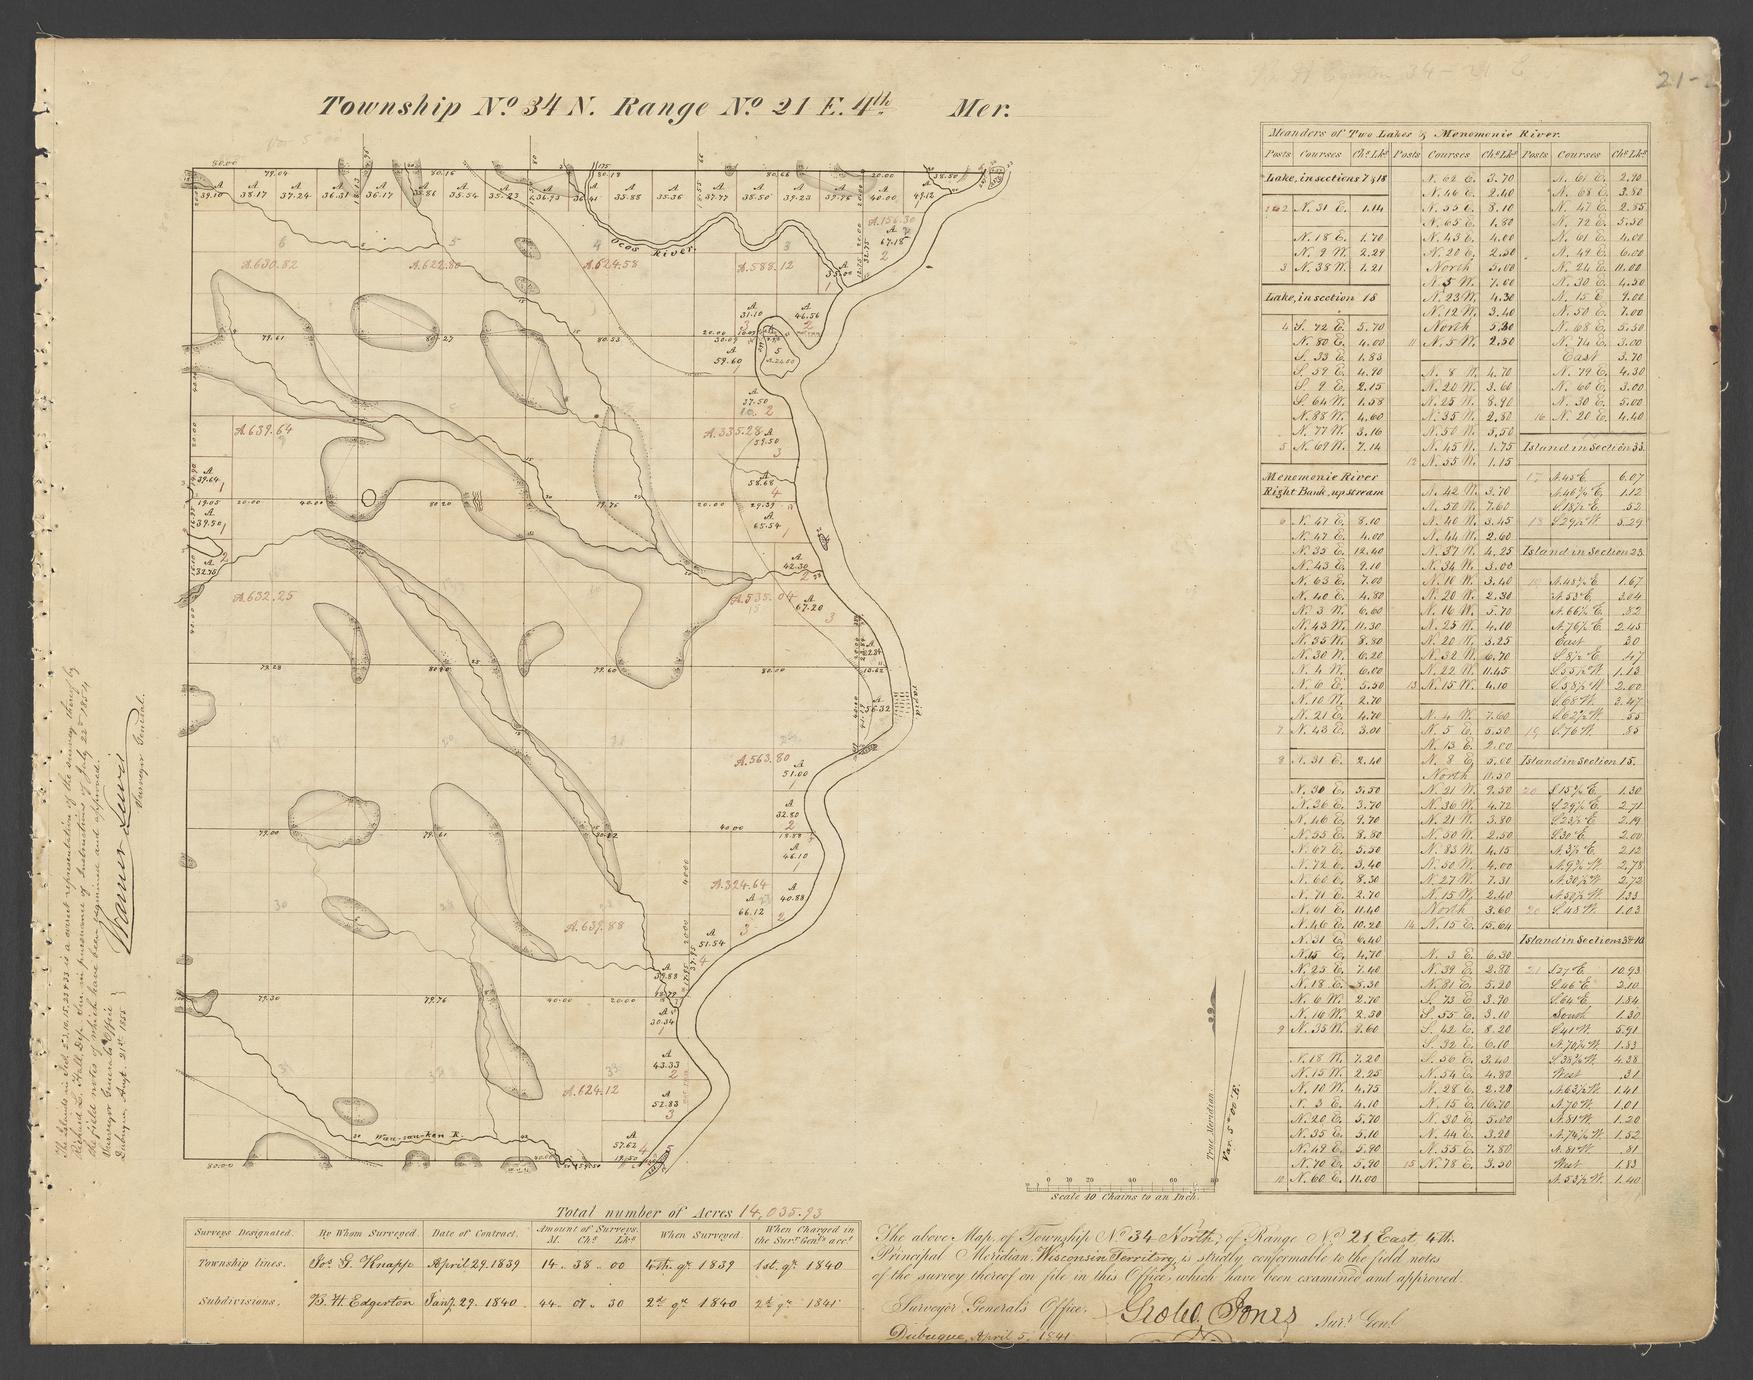 21-2
Township No. 34 N. Range No. 21 E. 4th Mer.
80.00
79.04
80.16
80.18
80.66
20.00
38.50
A 39.10
A 38.17
A 37.24
A 36.31
A 36.17
A 35.54
A 35.23
A 35.88
A 35.36
A 37.77
A 38.50
A 39.23
A 39.96
A 40.00
A 49.12
A.156.30
A 67.18
2
6
5
4
3
Ocos River
A.630.82
A.622.80
A.624.58
A.588.12
1
A 31.10
3
A 46.56
2
79.61
80.27
80.53
20.00
A 59.60
5
A 37.50
2
A.639.64
A.335.28
A 59.50
3
A 39.64
1
A 58.68
4
19.05
20.00
40.00
80.20
79.75
20.00
29.39
A 39.50
A 65.54
1
2
A 32.75
A 42.30
2
A.632.25
A.535.04
A 67.20
3
79.28
79.60
80.00
A 56.32
rapid
A.563.80
A 51.00
1
A 32.80
2
79.00
79.61
40.00
18.88
A 46.10
1
30
A.324.64
A 40.88
2
A 66.12
3
A.639.88
A 51.54
4
A 39.88
79.30
79.76
40.00
20.00
A 30.34
1
A 43.33
2
A.624.12
A 52.83
3
Wau-sau-kee R.
A 57.62
4
80.00
19.50
Total number of Acres 14,035.93
Scale 40 Chains to an Inch
True Meridian.
Var. 5° 00' E.
The Islands in Sects. 3, 10, 15, 23 & 33 is a correct representation of the survey thereof by
Richard L. Hall, Dep. Sur. in pursuance of Instructions of July 22nd 1854
the field notes of which have been examined and approved.
Surveyor General's Office
Dubuque, Augt. 21st 1855
Warner Lewis
Surveyor General.
Meanders of Two Lakes & Menomonie River.
Posts Courses Chs. Lks. Posts Courses Chs. Lks. Posts Courses Chs. Lks.
Lake, in sections 7 & 18
N. 31 E. 1.14
N. 18 E. 1.70
N. 9 W. 2.29
3 N. 38 W. 1.21
Lake, in section 18
4 S. 72 E. 5.70
N. 80 E. 4.00
S. 33 E. 1.83
S. 59 E. 4.90
S. 9 E. 2.15
S. 64 W. 1.58
N. 88 W. 4.60
N. 77 W. 3.16
5 N. 69 W. 7.14
Menomonie River
Right Bank, up stream
6 N. 47 E. 8.10
N. 47 E. 4.00
N. 35 E. 12.40
N. 43 E. 9.10
N. 63 E. 7.00
N. 40 E. 4.80
N. 3 W. 6.60
N. 43 W. 11.30
N. 35 W. 8.80
N. 30 W. 6.20
N. 4 W. 6.00
N. 6 E. 5.50
N. 10 W. 2.70
N. 21 E. 4.70
7 N. 43 E. 3.00
8 N. 31 E. 2.40
N. 30 E. 9.50
N. 36 E. 3.70
N. 46 E. 9.70
N. 55 E. 8.50
N. 67 E. 5.50
N. 72 E. 3.40
N. 60 E. 8.30
N. 71 E. 2.70
N. 61 E. 11.40
N. 46 E. 10.20
N. 31 E. 6.40
N. 15 E. 4.70
N. 25 E. 7.40
N. 18 E. 8.30
N. 6 W. 2.70
N. 16 W. 2.50
9 N. 35 W. 9.60
N. 18 W. 7.20
N. 15 W. 2.25
N. 10 W. 4.75
N. 3 E. 4.10
N. 20 E. 5.70
N. 35 E. 5.10
N. 49 E. 5.90
N. 70 E. 5.90
10 N. 60 E. 11.00
N. 62 E. 3.70
N. 46 E. 2.40
N. 55 E. 8.10
N. 65 E. 1.80
N. 43 E. 4.00
N. 20 E. 2.50
North 5.00
N. 5 W. 7.00
N. 23 W. 4.30
N. 12 W. 3.40
North 5.30
11 N. 5 W. 2.50
N. 8 W. 4.70
N. 20 W. 3.60
N. 25 W. 8.90
N. 35 W. 2.80
N. 50 W. 5.50
N. 45 W. 1.75
12 N. 55 W. 1.15
N. 42 W. 3.70
N. 50 W. 7.60
N. 40 W. 3.45
N. 44 W. 2.60
N. 37 W. 4.25
N. 34 W. 3.00
N. 10 W. 3.40
N. 20 W. 2.30
N. 16 W. 5.70
N. 25 W. 4.10
N. 20 W. 3.25
N. 32 W. 6.70
N. 22 W. 11.45
13 N. 15 W. 4.10
N. 4 W. 7.60
N. 5 E. 5.50
N. 13 E. 2.00
N. 8 E. 5.00
North 11.50
N. 21 W. 9.50
N. 36 W. 4.72
N. 21 W. 3.80
N. 50 W. 2.50
N. 83 W. 4.15
N. 50 W. 4.00
N. 27 W. 7.31
N. 15 W. 2.40
North 3.60
14 N. 15 E. 15.64
N. 3 E. 6.30
N. 39 E. 2.80
N. 81 E. 5.20
S. 73 E. 3.90
S. 55 E. 3.10
S. 42 E. 8.20
S. 32 E. 6.10
S. 56 E. 3.40
N. 54 E. 4.80
N. 28 E. 2.20
N. 15 E. 16.70
N. 30 E. 5.00
N. 44 E. 3.20
N. 55 E. 7.80
15 N. 78 E. 3.50
N. 61 E. 2.90
N. 68 E. 3.80
N. 47 E. 2.85
N. 72 E. 5.50
N. 61 E. 4.00
N. 49 E. 6.00
N. 24 E. 11.00
N. 30 E. 4.50
N. 15 E. 9.00
N. 50 E. 7.00
N. 68 E. 5.50
N. 74 E. 3.00
East 3.70
N. 79 E. 4.30
N. 60 E. 3.00
N. 30 E. 5.00
16 N. 20 E. 4.40
Island in Section 33.
17 N. 45 E. 6.07
1.12
.52
18 5.29
Island in Section 23.
19 1.67
N. 53 E. 3.04
.82
2.45
East .30
.47
1.13
2.00
S. 68 W. 3.47
.55
19 S. 76 W. .85
Island in Section 15.
20 1.30
2.71
2.19
S. 30 E. 2.00
2.12
2.78
2.72
1.33
20 S. 48 W. 1.03
Island in Sections 3 & 10.
21 S. 27 E. 10.93
S. 46 E. 2.10
S. 64 E. 1.84
South 1.30
S. 41 W. 5.91
1.83
4.38
West .31
1.41
N. 70 W. 1.01
N. 81 W. 1.20
1.52
N. 81 W. .31
West 1.83
1.40
Surveys Designated. By Whom Surveyed. Date of Contract. Amount of Surveys. M. Chs. Lks. When Surveyed. When Charged in the Surr. Genl's acct.
Township lines. Jos. G. Knapp April 29. 1839 14.. 38.. 00 4th. qr. 1839 1st. qr. 1840
Subdivisions. B. H. Edgerton Jany. 29. 1840. 44. 07.. 30 2d. qr. 1840 2d. qr. 1841
The above Map, of Township No. 34 North, of Range No. 21 East, 4th.
Principal Meridian, Wisconsin Territory, is strictly conformable to the field notes
of the survey thereof on file in this Office, which have been examined and approved.
Surveyor General's Office.
Dubuque, April 5, 1841
Geo. W. Jones
Surr. Genl.